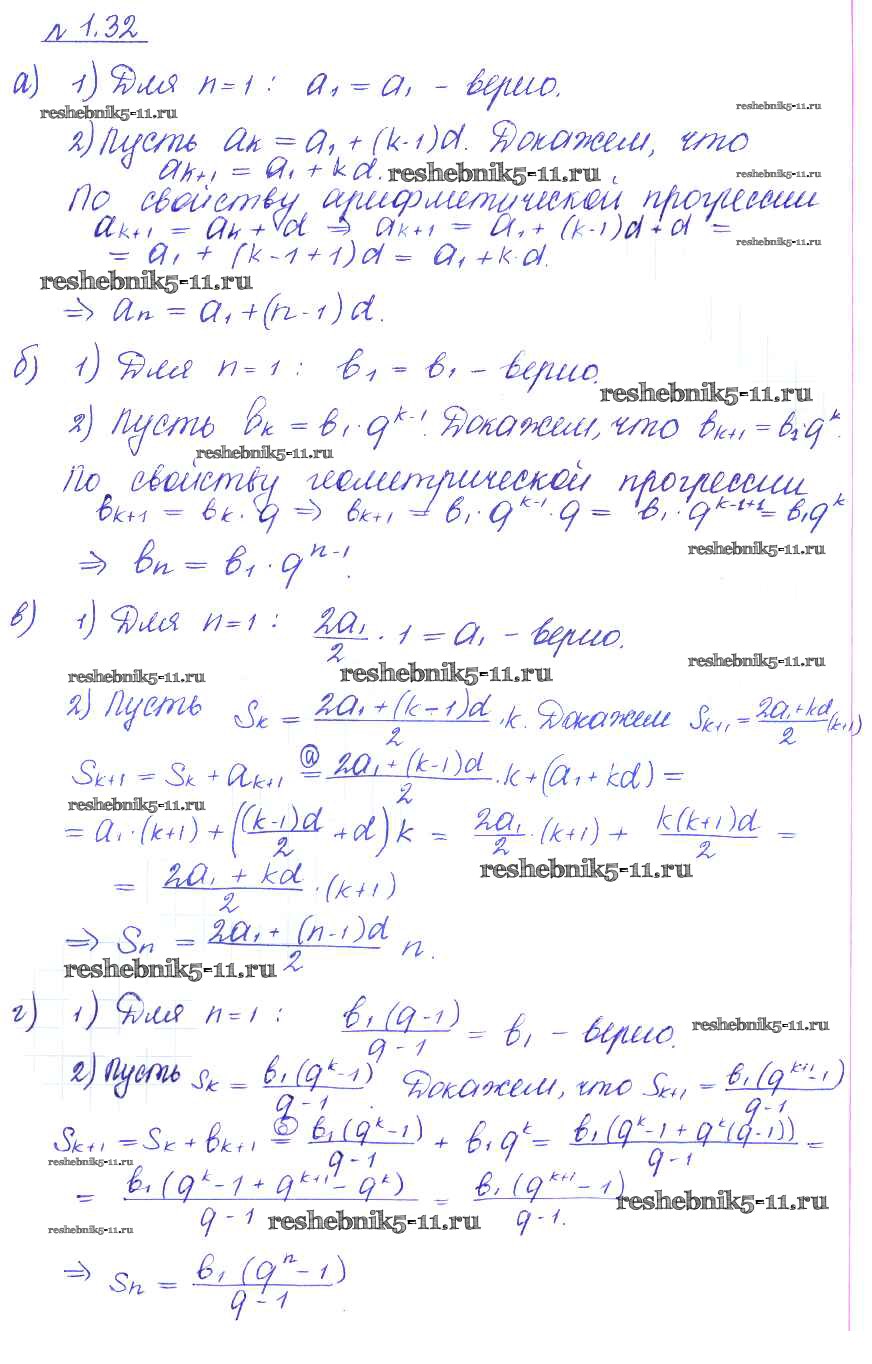 № 1.32
а) 1) Для n=1 : a₁ = a₁ - верно.
reshebnik5-11.ru reshebnik5-11.ru
2) Пусть aₖ = a₁ + (k-1)d. Докажем, что
aₖ₊₁ = a₁ + kd. reshebnik5-11.ru reshebnik5-11.ru
По свойству арифметической прогрессии
aₖ₊₁ = aₖ + d ⇒ aₖ₊₁ = a₁ + (k-1)d + d =
reshebnik5-11.ru
= a₁ + (k-1+1)d = a₁ + k·d.
reshebnik5-11.ru
⇒ aₙ = a₁ + (n-1)d.
б) 1) Для n=1 : в₁ = в₁ - верно.
reshebnik5-11.ru
2) Пусть вₖ = в₁·q^(k-1). Докажем, что вₖ₊₁ = в₁·q^k.
reshebnik5-11.ru
По свойству геометрической прогрессии
вₖ₊₁ = вₖ·q ⇒ вₖ₊₁ = в₁·q^(k-1)·q = в₁·q^(k-1+1) = в₁q^k
reshebnik5-11.ru
⇒ вₙ = в₁·q^(n-1).
в) 1) Для n=1 : 2a₁/2 · 1 = a₁ - верно.
reshebnik5-11.ru reshebnik5-11.ru reshebnik5-11.ru
2) Пусть Sₖ = (2a₁+(k-1)d)/2 ·k. Докажем Sₖ₊₁ = (2a₁+kd)/2 (k+1)
Sₖ₊₁ = Sₖ + aₖ₊₁ =ⓐ (2a₁+(k-1)d)/2 ·k + (a₁+kd) =
reshebnik5-11.ru
= a₁·(k+1) + ((k-1)d/2 + d)k = 2a₁/2 ·(k+1) + k(k+1)d/2 =
reshebnik5-11.ru
= (2a₁ + kd)/2 ·(k+1)
⇒ Sₙ = (2a₁+(n-1)d)/2 n.
reshebnik5-11.ru
г) 1) Для n=1 : в₁(q-1)/(q-1) = в₁ - верно.
reshebnik5-11.ru
2) Пусть Sₖ = в₁(q^k-1)/(q-1). Докажем, что Sₖ₊₁ = в₁(q^(k+1)-1)/(q-1)
Sₖ₊₁ = Sₖ + вₖ₊₁ =ⓑ в₁(q^k-1)/(q-1) + в₁q^k = в₁(q^k-1+q^k(q-1))/(q-1) =
reshebnik5-11.ru
= в₁(q^k-1+q^(k+1)-q^k)/(q-1) = в₁(q^(k+1)-1)/(q-1).
reshebnik5-11.ru reshebnik5-11.ru reshebnik5-11.ru
⇒ Sₙ = в₁(qⁿ-1)/(q-1)